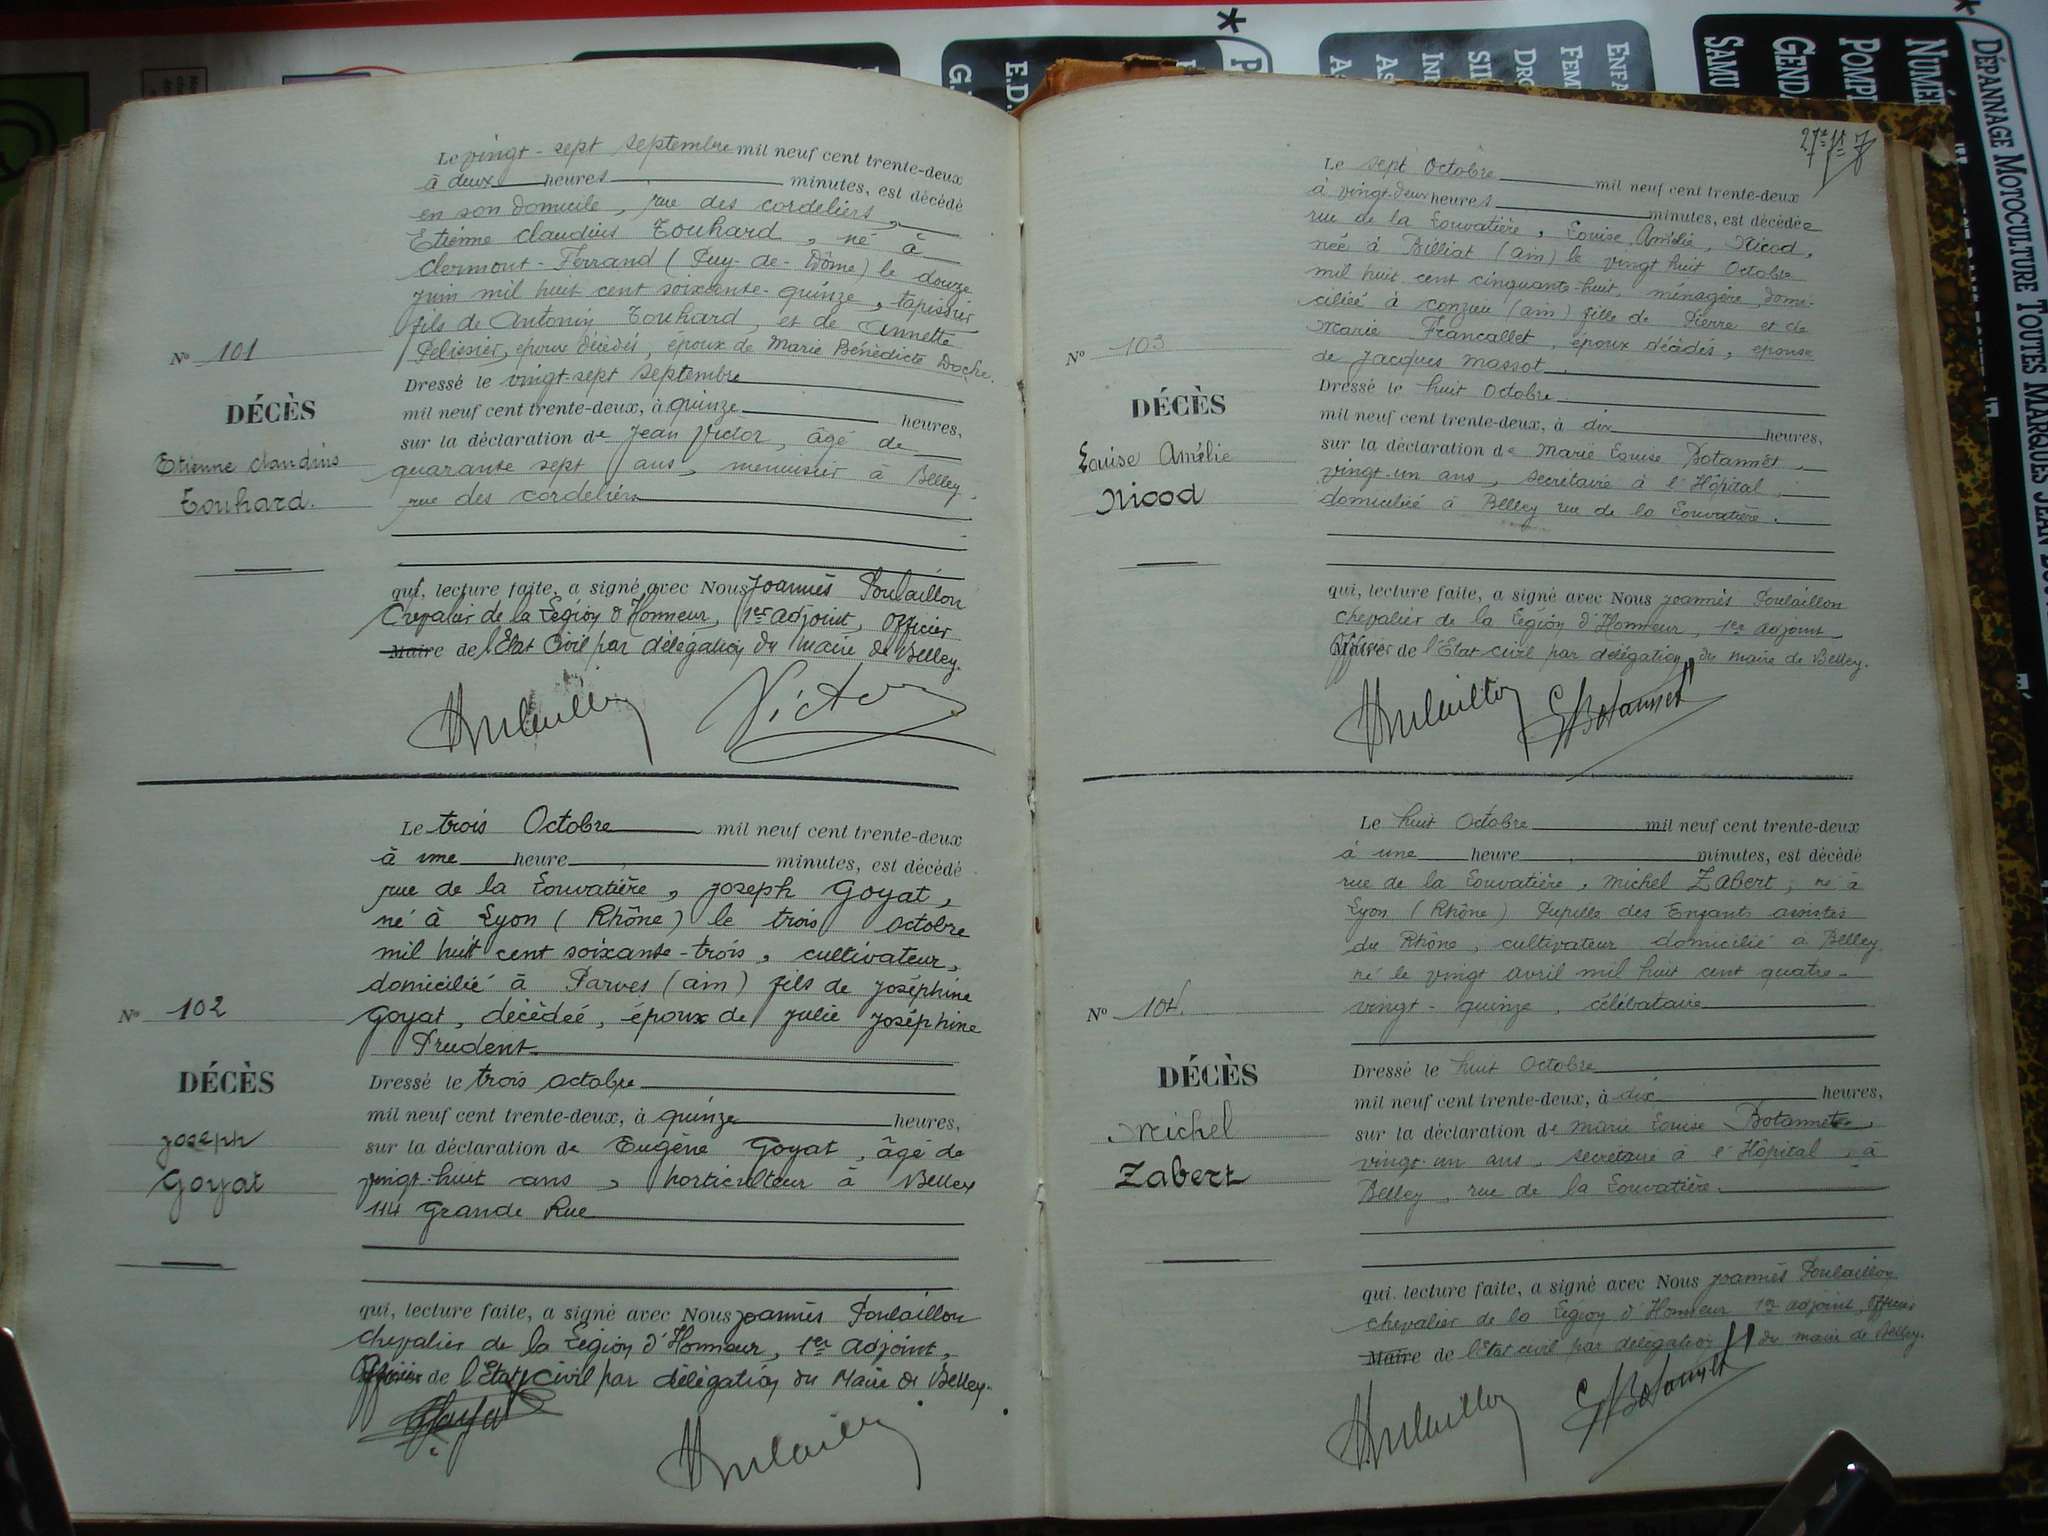 DÉPANNAGE MOTOCULTURE TOUTES MARQUES JEAN
SAMU
GEND
POMPI
NUMÉ
ENFA
FEM
DRO
SIL
INF
AS
E.D.
G.
Le vingt-sept septembre mil neuf cent trente-deux
à deux heures minutes, est décédé
en son domicile, rue des cordeliers,
Etienne Claudius Touhard, né à
Clermont-Ferrand (Puy-de-Dôme) le douze
juin mil huit cent soixante-quinze, tapissier
fils de Antonin Touhard, et de Annette
Pelissier, époux décédés, époux de Marie Bénédicte Doche.
Nº 101
DÉCÈS
Etienne Claudius
Touhard.
Dressé le vingt-sept septembre
mil neuf cent trente-deux, à quinze heures,
sur la déclaration de Jean Victor, âgé de
quarante sept ans, menuisier à Belley,
rue des cordeliers
qui, lecture faite, a signé avec Nous Joannès Poulaillon
Chevalier de la Légion d'Honneur, 1er adjoint, officier
Maire de l'Etat Civil par délégation du Maire de Belley.
Poulaillon Victor
Le trois Octobre mil neuf cent trente-deux
à une heure minutes, est décédé
rue de la Louvatière, Joseph Goyat,
né à Lyon (Rhône) le trois octobre
mil huit cent soixante-trois, cultivateur,
domicilié à Parves (ain) fils de Joséphine
Goyat, décédée, époux de Julie Joséphine
Prudent.
Nº 102
DÉCÈS
Joseph
Goyat
Dressé le trois octobre
mil neuf cent trente-deux, à quinze heures,
sur la déclaration de Eugène Goyat, âgé de
vingt-huit ans, horticulteur à Belley
114 Grande Rue
qui, lecture faite, a signé avec Nous Joannès Poulaillon
chevalier de la Légion d'Honneur, 1er adjoint,
Officier de l'Etat Civil par délégation du Maire de Belley.
Goyat Poulaillon
Le sept Octobre mil neuf cent trente-deux
à vingt-deux heures minutes, est décédée
rue de la Louvatière, Louise, Amélie, Nicod,
née à Billiat (ain) le vingt huit Octobre
mil huit cent cinquante-huit, ménagère domi-
ciliée à Conzieu (ain) fille de Pierre et de
Marie Francallet, époux décédés, épouse
de Jacques Massot.
Nº 103
DÉCÈS
Louise Amélie
Nicod
Dressé le huit Octobre
mil neuf cent trente-deux, à dix heures,
sur la déclaration de Marie Louise Botannet,
vingt-un ans, secrétaire à l'Hôpital,
domiciliée à Belley rue de la Louvatière.
qui, lecture faite, a signé avec Nous Joannès Poulaillon
chevalier de la Légion d'Honneur, 1er adjoint
Officier de l'Etat civil par délégation du maire de Belley.
Poulaillon Botannet
Le huit Octobre mil neuf cent trente-deux
à une heure minutes, est décédé
rue de la Louvatière, Michel Zabert, né à
Lyon (Rhône) Pupille des Enfants assistés
du Rhône, cultivateur domicilié à Belley
né le vingt avril mil huit cent quatre-
vingt-quinze, célibataire
Nº 104
DÉCÈS
Michel
Zabert
Dressé le huit Octobre
mil neuf cent trente-deux, à dix heures,
sur la déclaration de Marie Louise Botannet,
vingt-un ans, secrétaire à l'Hôpital, à
Belley, rue de la Louvatière.
qui, lecture faite, a signé avec Nous Joannès Poulaillon
chevalier de la Légion d'Honneur 1er adjoint, Officier
Maire de l'Etat civil par délégation du maire de Belley.
Poulaillon Botannet